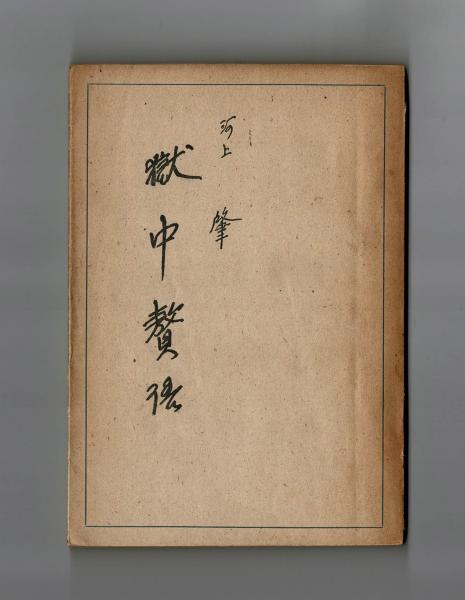 河上肇
獄中贅語